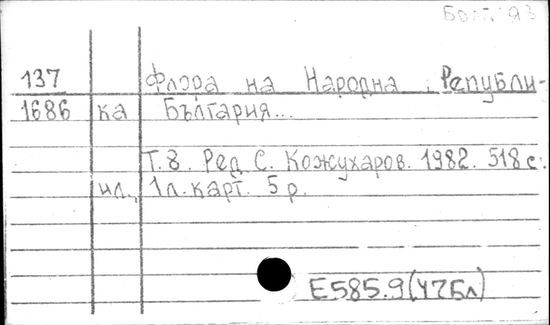 Болг. яз
137 Флора на Народна Републи-
1686 ка България...
Т.8. Ред. С. Кожухаров. 1982. 518 с.
ил., 1 л. карт. 5 р.
Е585.9(47Бл)